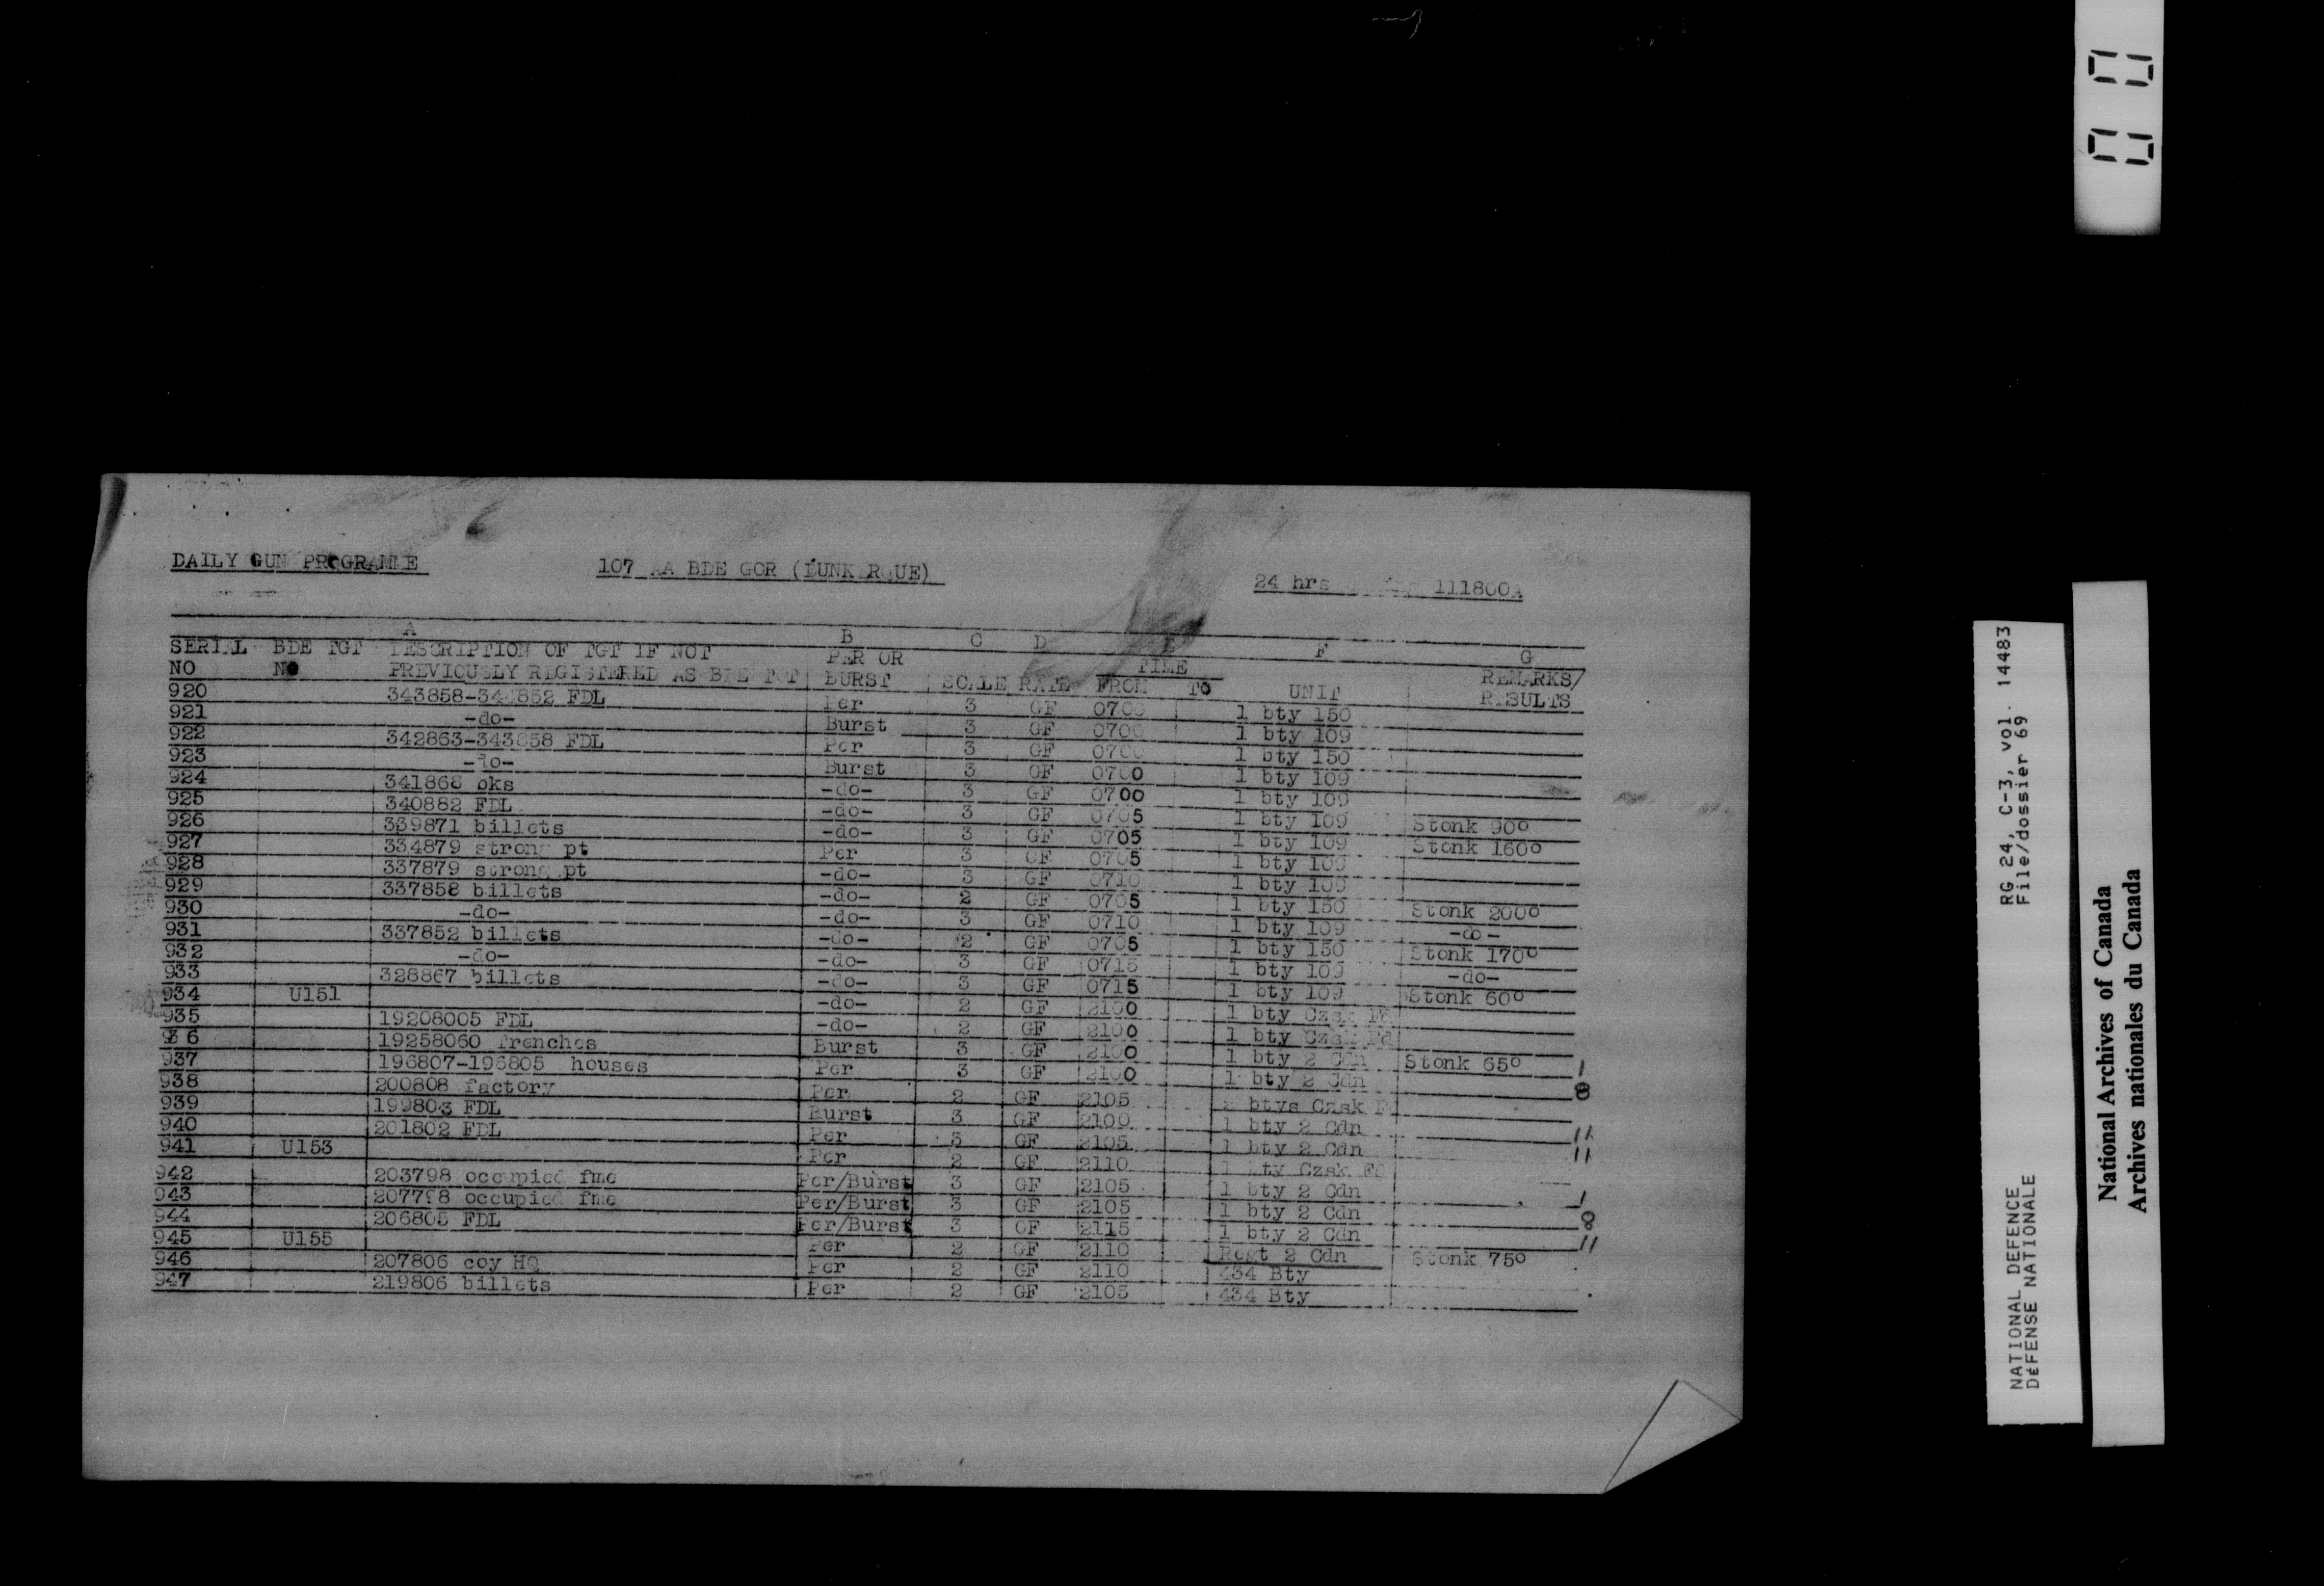 DAILY GUN PROGRAMME 107 AA BDE GOR (DUNKERQUE) 24 hrs 111800A
A B C D E F G
SERIAL BDE TGT DESCRIPTION OF TGT IF NOT PER OR TIME REMARKS/
NO NO PREVIOUSLY REGISTERED AS BDE TGT BURST SCALE RATE FROM TO UNIT RESULTS
920 343858-343852 FDL Per 3 GF 0700 1 bty 150
921 -do- Burst 3 GF 0700 1 bty 109
922 342863-343858 FDL Per 3 GF 0700 1 bty 150
923 -do- Burst 3 GF 0700 1 bty 109
924 341868 bks -do- 3 GF 0700 1 bty 109
925 340882 FDL -do- 3 GF 0705 1 bty 109 Stonk 90º
926 339871 billets -do- 3 GF 0705 1 bty 109 Stonk 160º
927 334879 strong pt Per 3 GF 0705 1 bty 109
928 337879 strong pt -do- 3 GF 0710 1 bty 109
929 337858 billets -do- 2 GF 0705 1 bty 150 Stonk 200º
930 -do- -do- 3 GF 0710 1 bty 109 -do-
931 337852 billets -do- 2 GF 0705 1 bty 150 Stonk 170º
932 -do- -do- 3 GF 0715 1 bty 109 -do-
933 328867 billets -do- 3 GF 0715 1 bty 109 Stonk 60º
934 U151 -do- 2 GF 2100 1 bty Czsk Fd
935 19208005 FDL -do- 2 GF 2100 1 bty Czsk Fd
936 19258060 Trenches Burst 3 GF 2100 1 bty 2 Cdn Stonk 65º
937 196807-196805 houses Per 3 GF 2100 1 bty 2 Cdn
938 200808 factory Per 2 GF 2105 btys Czsk F
939 199803 FDL Burst 3 GF 2100 1 bty 2 Cdn
940 201802 FDL Per 3 GF 2105 1 bty 2 Cdn
941 U153 Per 2 GF 2110 1 bty Czsk Fd
942 203798 occupied fme Per/Burst 3 GF 2105 1 bty 2 Cdn
943 207798 occupied fme Per/Burst 3 GF 2105 1 bty 2 Cdn
944 206805 FDL Per/Burst 3 GF 2115 1 bty 2 Cdn
945 U155 Per 2 GF 2110 Regt 2 Cdn Stonk 75º
946 207806 coy HQ Per 2 GF 2110 434 Bty
947 219806 billets Per 2 GF 2105 434 Bty
RG 24, C-3, vol. 14483
File/dossier 69
NATIONAL DEFENCE
DéFENSE NATIONALE
National Archives of Canada
Archives nationales du Canada